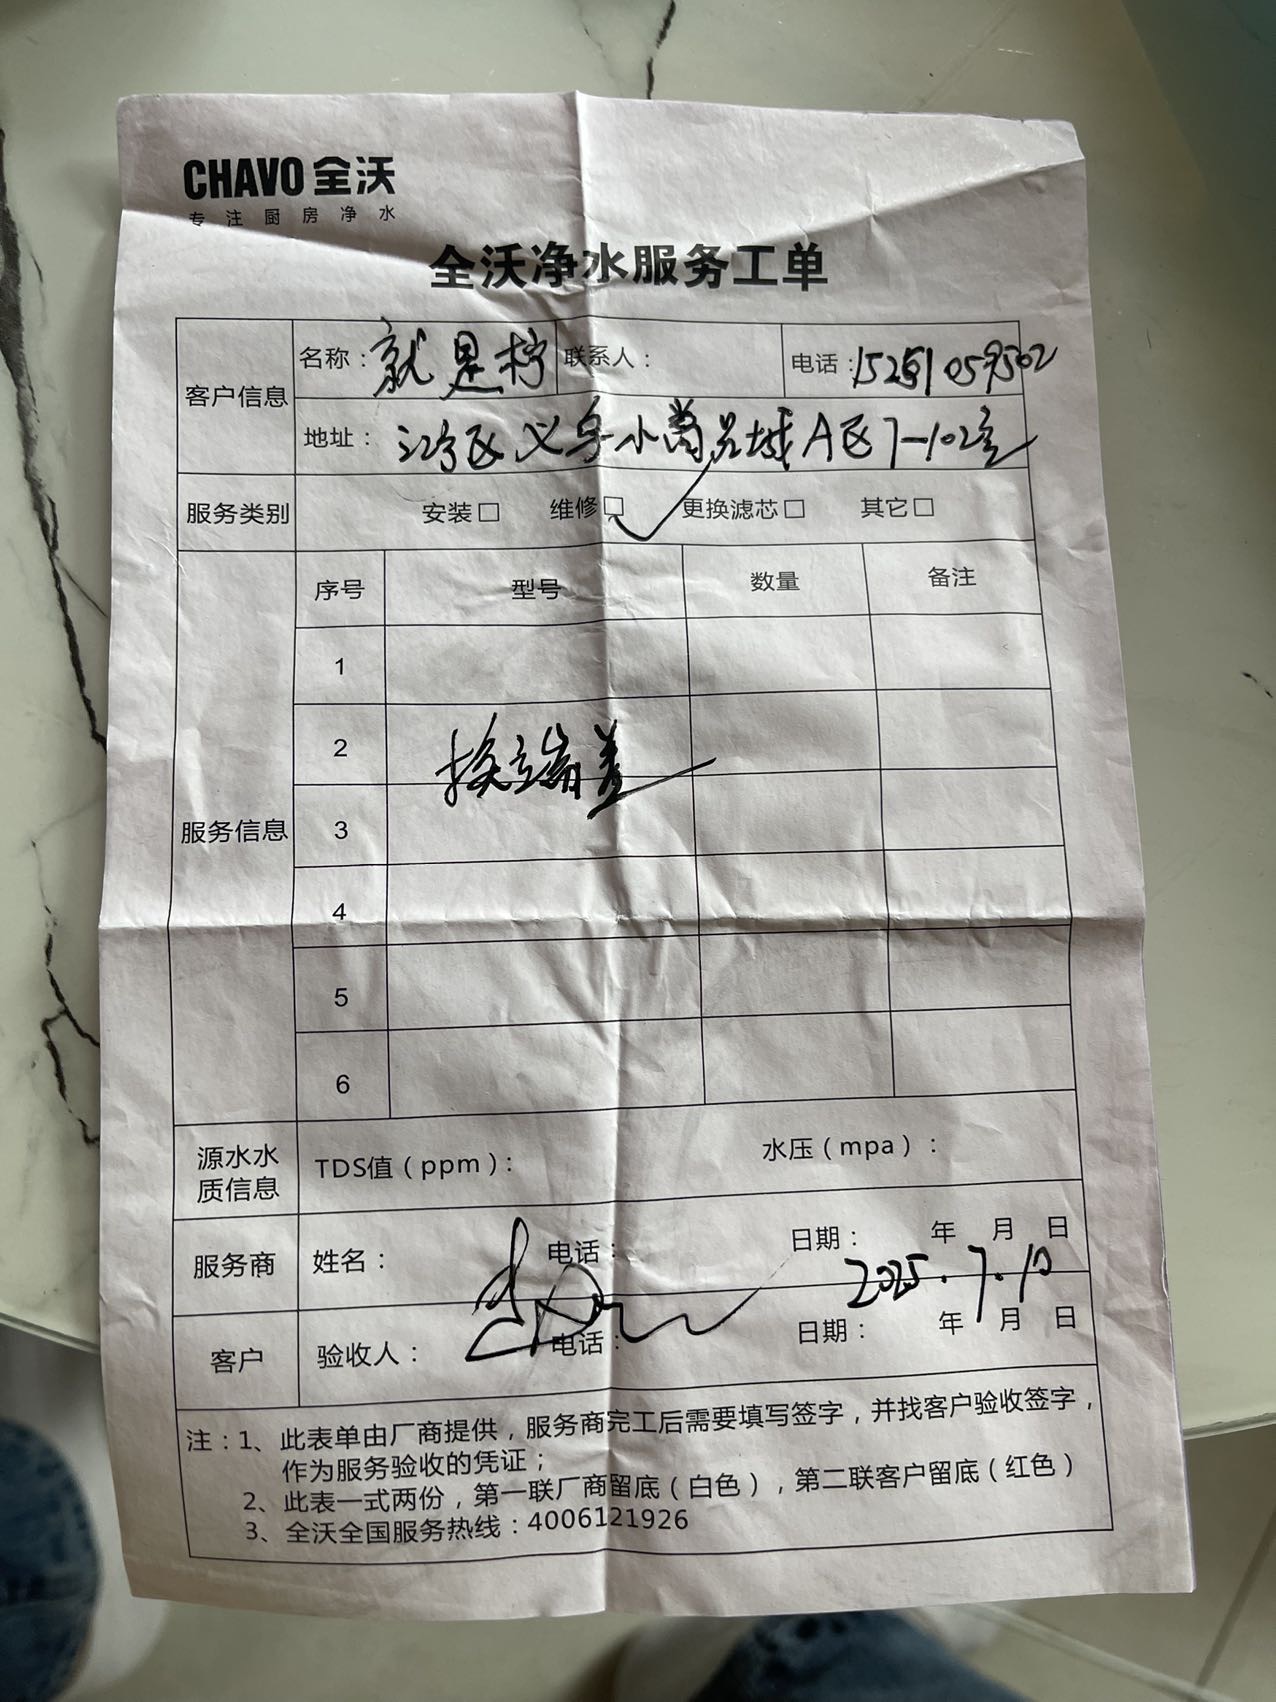 CHAVO 全沃
专注厨房净水
全沃净水服务工单
客户信息
名称：就是柠 联系人： 电话：
地址：江宁区义乌小商品城A区7-102室
服务类别 安装□ 维修□ 更换滤芯□ 其它□
服务信息
序号 型号 数量 备注
1
2
换端盖
3
4
5
6
源水水质信息 TDS值（ppm）： 水压（mpa）：
服务商 姓名： 电话： 日期： 年 月 日
2025.7.10
客户 验收人： 电话： 日期： 年 月 日
注：1、此表单由厂商提供，服务商完工后需要填写签字，并找客户验收签字，
作为服务验收的凭证；
2、此表一式两份，第一联厂商留底（白色），第二联客户留底（红色）
3、全沃全国服务热线：4006121926